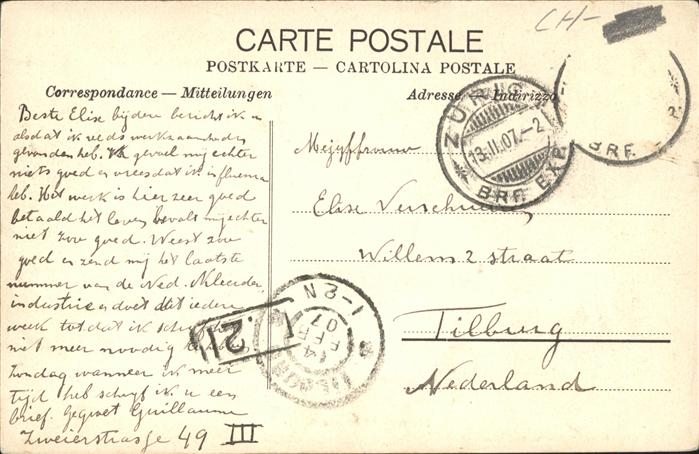 CH-
CARTE POSTALE
POSTKARTE — CARTOLINA POSTALE
Correspondance — Mitteilungen
Adresse Indirizzo
ZÜRICH
13.II.07.-2
BRF. EXP.
BRF.
Beste Elise bij dezen bericht ik u
alsdat ik reeds werkzaamheden
gevonden heb. Ik gevoel mij echter
niets goed en vrees dat ik influenza
heb. Het werk is hier zeer goed
betaald het leven bevalt mij echter
niet zoo goed. Weest zoo
goed en zend mij het laatste
nummer van de Ned. Kleeder
industrie en doet dit iedere
week tot dat ik
niet meer noodig
Zondag wanneer ik meer
tijd heb schrijf ik u een
brief. gegroet Guillaume
Zweierstrasse 49 III
Mejuffrouw
Elise Verschuuren
Willem 2 straat
Tilburg
Nederland
TILBURG
14
FEB
07
1-2N
21